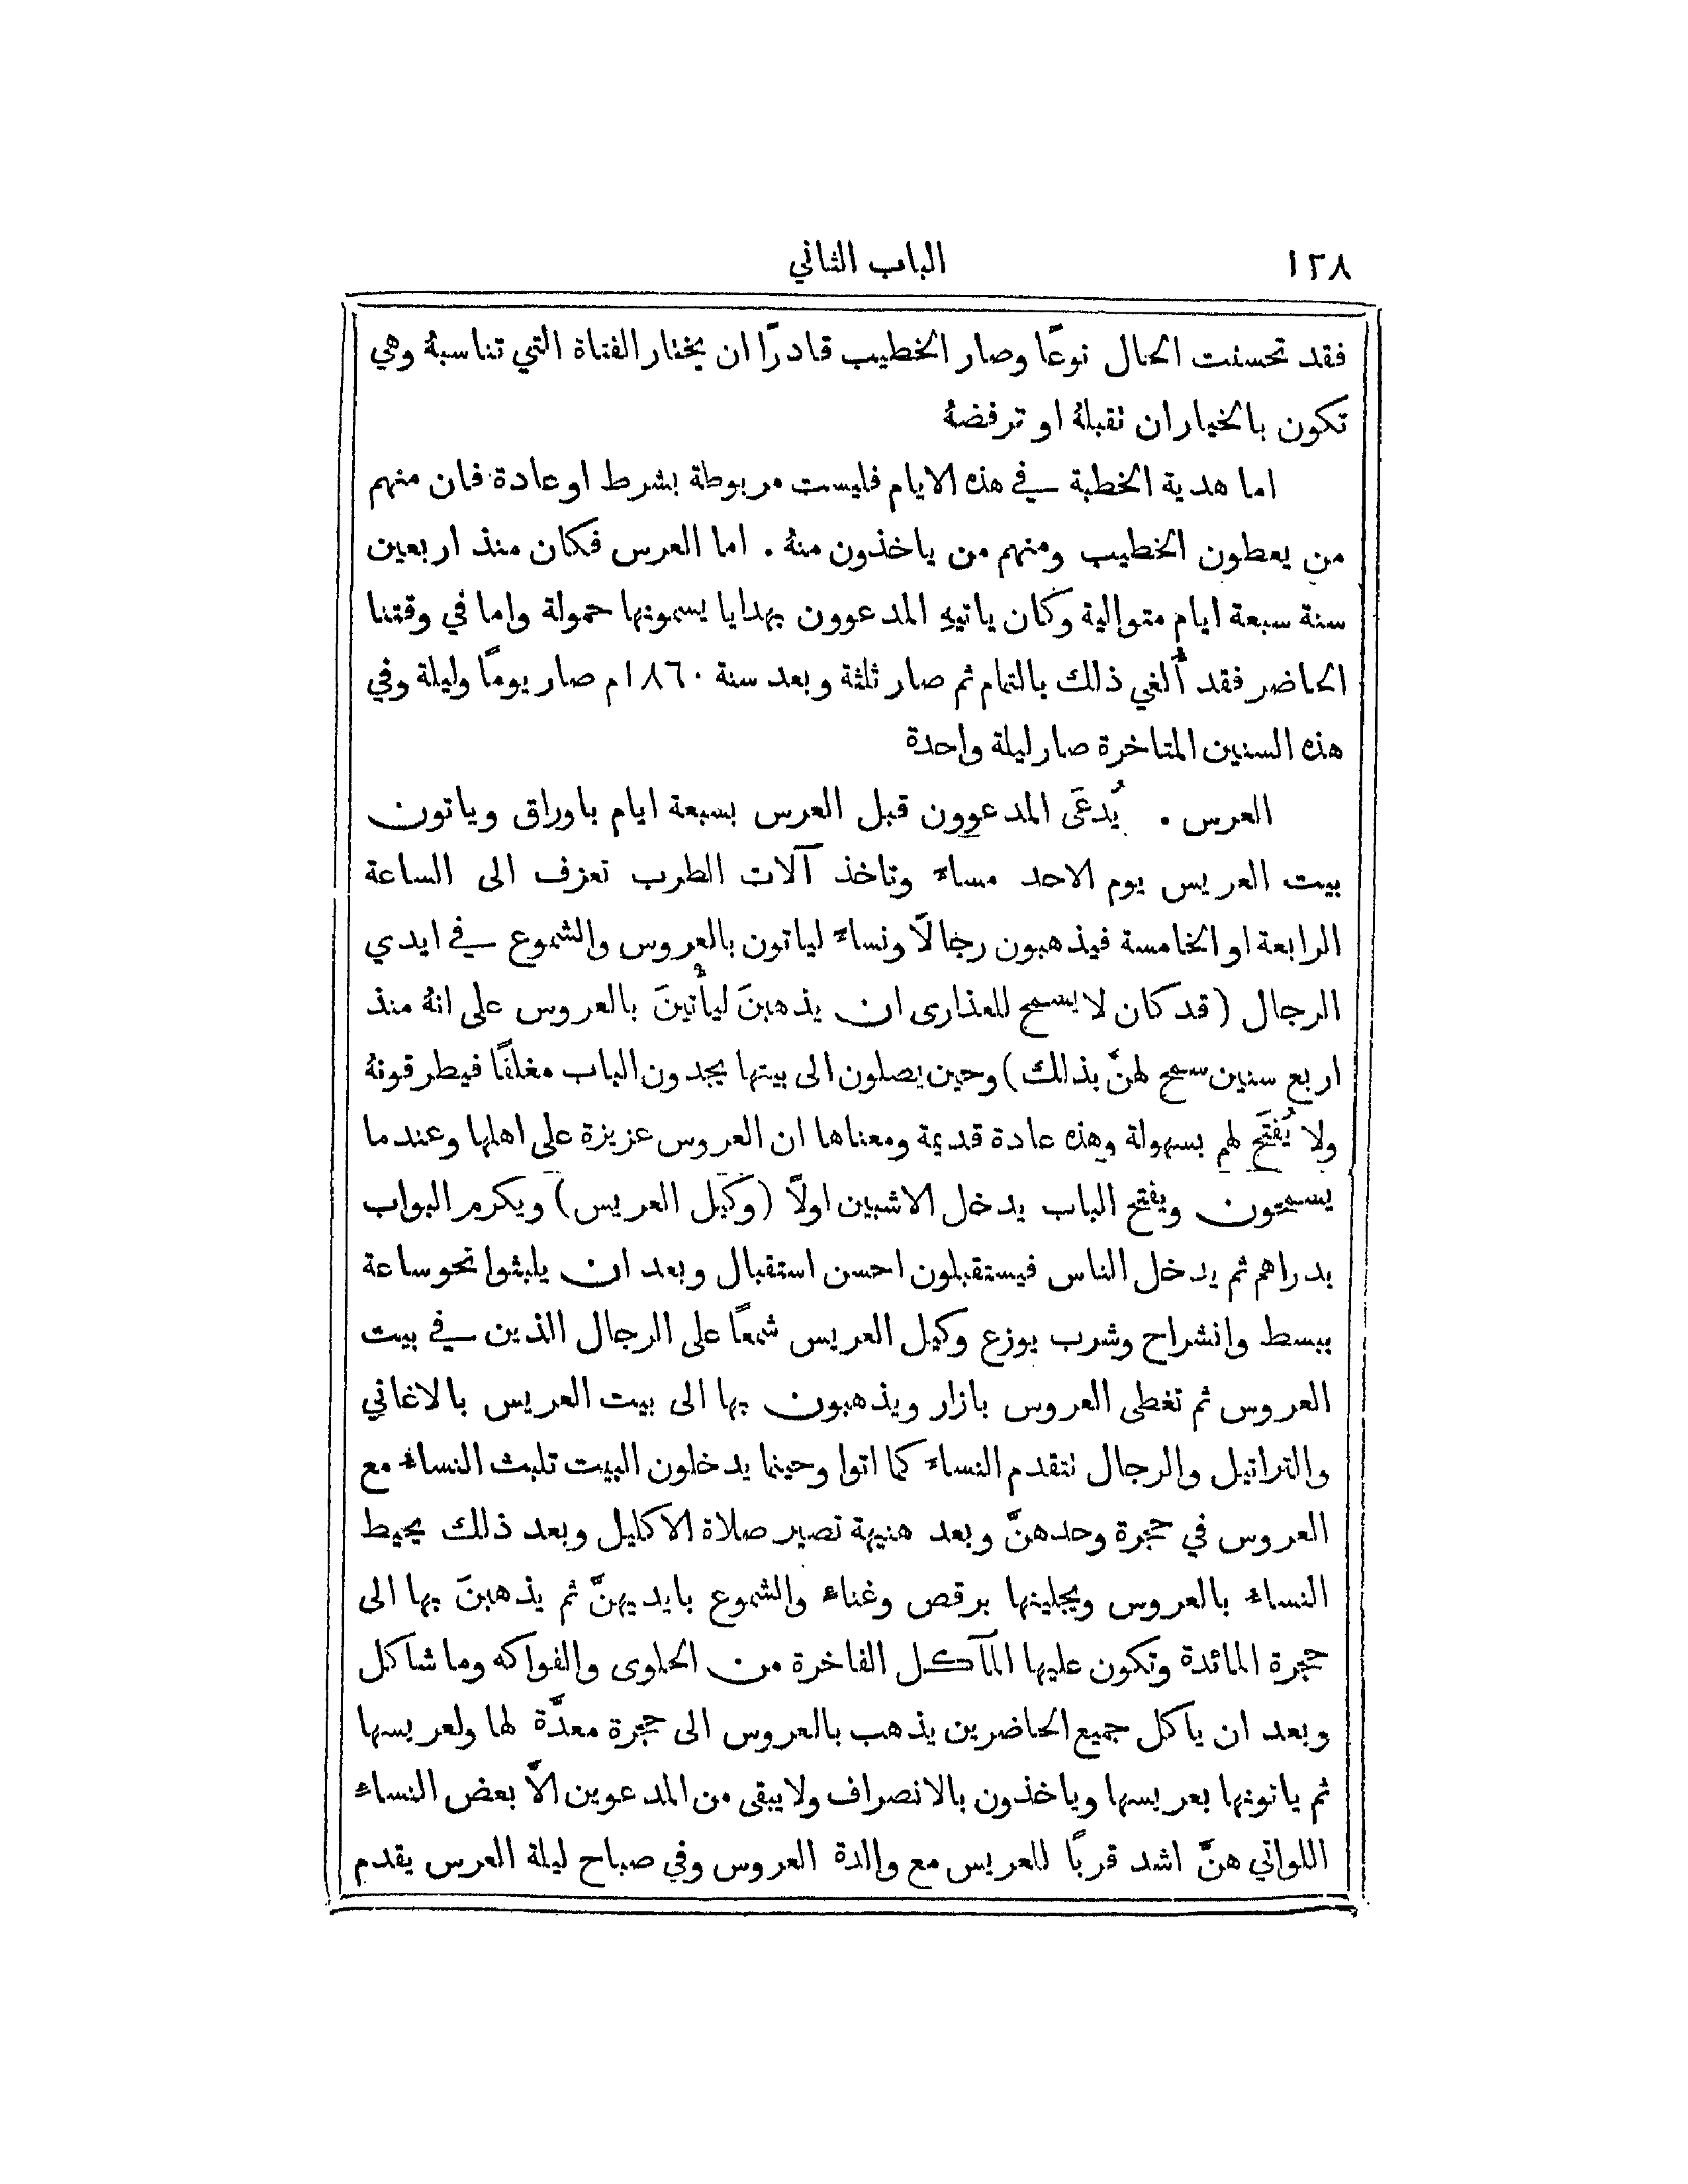 ١٢٨ الباب الثاني
فقد تحسنت الحال نوعًا وصار الخطيب قادرًا ان يختار الفتاة التي تناسبهُ وهي
تكون بالخيار ان تقبلهُ او ترفضهُ
اما هدية الخطبة في هذه الايام فليست مربوطة بشرط او عادة فان منهم
من يعطون الخطيب ومنهم من ياخذون منهُ . اما العرس فكان منذ اربعين
سنة سبعة ايام متوالية وكان ياتيهِ المدعوون بهدايا يسمونها حمولة واما في وقتنا
الحاضر فقد أُلغي ذلك بالتمام ثم صار ثلثة وبعد سنة ١٨٦٠م صار يومًا وليلة وفي
هذه السنين المتاخرة صار ليلة واحدة
العرس . يُدعَى المدعوون قبل العرس بسبعة ايام باوراق وياتون
بيت العريس يوم الاحد مساءً وتاخذ آلات الطرب تعزف الى الساعة
الرابعة او الخامسة فيذهبون رجالًا ونساءً لياتون بالعروس والشموع في ايدي
الرجال (قد كان لا يسمح للعذارى ان يذهبنَ ليأتينَ بالعروس على انهُ منذ
اربع سنين سمح لهنَّ بذلك) وحين يصلون الى بيتها يجدون الباب مغلقًا فيطرقونهُ
ولا يُفتَح لهم بسهولة وهذه عادة قديمة ومعناها ان العروس عزيزة على اهلها وعندما
يسمحون ويفتح الباب يدخل الاشبين اولًا (وكيل العريس) ويكرم البواب
بدراهم ثم يدخل الناس فيستقبلون احسن استقبال وبعد ان يلبثوا نحو ساعة
ببسط وانشراح وشرب يوزع وكيل العريس شمعًا على الرجال الذين في بيت
العروس ثم تغطى العروس بازار ويذهبون بها الى بيت العريس بالاغاني
والتراتيل والرجال تتقدم النساءَ كما اتوا وحينما يدخلون البيت تلبث النساءُ مع
العروس في حجرة وحدهنَّ وبعد هنيهة تصير صلاة الاكليل وبعد ذلك يحيط
النساءُ بالعروس ويجلينها برقص وغناء والشموع بايديهنَّ ثم يذهبنَ بها الى
حجرة المائدة وتكون عليها المآكل الفاخرة من الحلوى والفواكه وما شاكل
وبعد ان ياكل جميع الحاضرين يذهب بالعروس الى حجرة معدَّة لها ولعريسها
ثم ياتونها بعريسها وياخذون بالانصراف ولا يبقى من المدعوين الَّا بعض النساء
اللواتي هنَّ اشد قربًا للعريس مع والدة العروس وفي صباح ليلة العرس يقدم